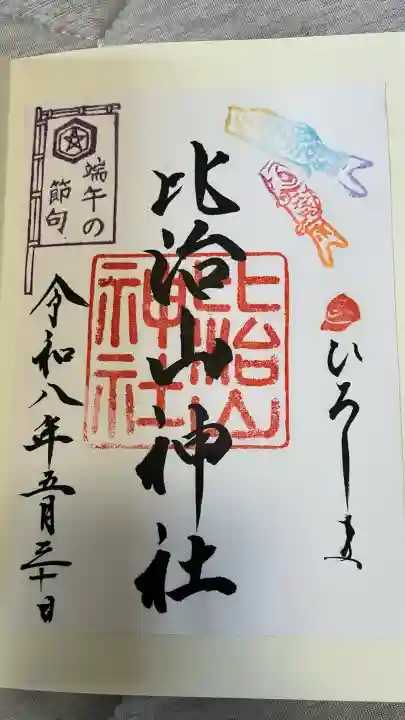 ひろしま
比治山神社
比治山
神社
端午の
節句
令和八年五月三十日